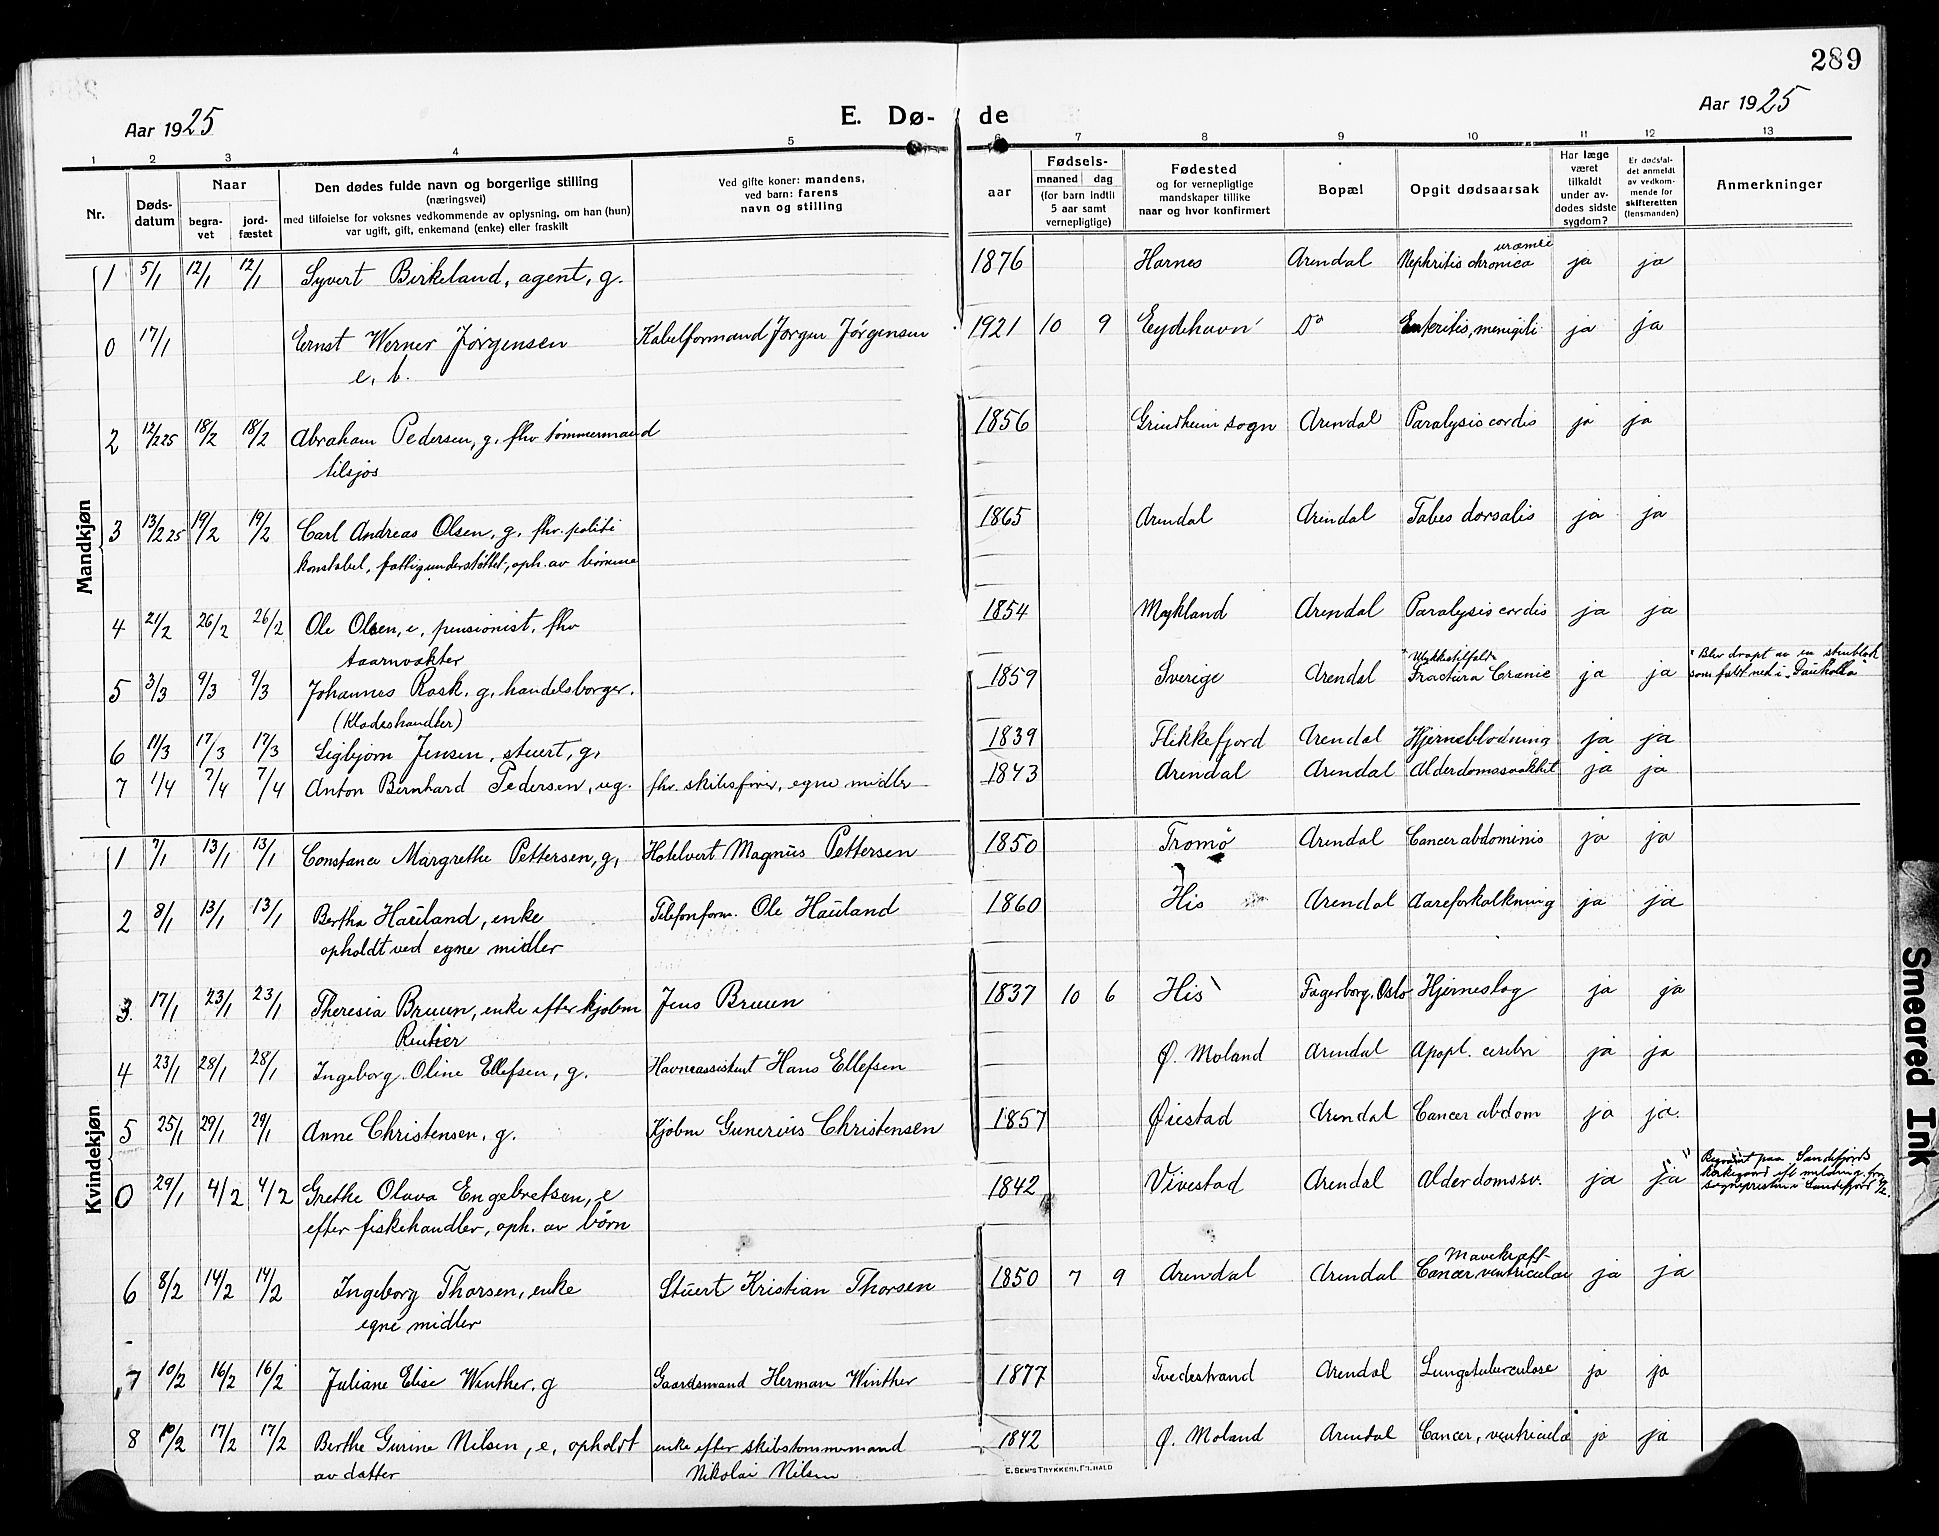 289
Aar 1925
E. Dø-
de
Aar 1925
1 2 3 4 5 6 7 8 9 10 11 12 13
Nr.
Døds-
datum
Naar
begra-
vet
jord-
fæstet
Den dødes fulde navn og borgerlige stilling
(næringsvei)
med tilføielse for voksnes vedkommende av oplysning, om han (hun)
var ugift, gift, enkemand (enke) eller fraskilt
Ved gifte koner: mandens,
ved barn: farens
navn og stilling
aar
Fødsels-
maaned dag
(for barn indtil
5 aar samt
vernepligtige)
Fødested
og for vernepligtige
mandskaper tillike
naar og hvor konfirmert
Bopæl
Opgit dødsaarsak
Har læge
været
tilkaldt
under av-
dødes sidste
sygdom?
Er dødsfal-
det anmeldt
av vedkom-
mende for
skifteretten
(lensmanden)
Anmerkninger
Mandkjøn
uræmi
1 5/1 12/1 12/1 Syvert Birkeland, agent, g. 1876 Hornes Arendal Nephritis chronica ja ja
0 17/1 Ernst Werner Jørgensen Kabelformand Jørgen Jørgensen 1921 10 9 Eydehavn Do Enteritis, menigiti ja ja
e, b.
2 12/2 25 18/2 18/2 Abraham Pedersen, g, fhv tømmermand 1856 Grindheim sogn Arendal Paralysis cordis ja ja
tilsjøs
3 13/2 25 19/2 19/2 Carl Andreas Olsen, g, fhv. politi 1865 Arendal Arendal Tabes dorsalis ja ja
konstabel, fattigunderstøttet, oph. av børnene
4 21/2 26/2 26/2 Ole Olsen, e, pensionist, fhv 1854 Mykland Arendal Paralysis cordis ja ja
taarnvakter
Ulykkestilfælde
" Blev dræpt av en stenblok
5 3/3 9/3 9/3 Johannes Rask, g, handelsborger. 1859 Sverige Arendal Fractura Cranie ja ja som faldt ned i
(Klædeshandler)
6 11/3 17/3 17/3 Sigbjørn Jensen, stuert, g, 1839 Flekkefjord Arendal Hjerneblødning ja ja
7 1/4 7/4 7/4 Anton Bernhard Pedersen, ug. fhv. skibsfører, egne midler 1843 Arendal Arendal Alderdomssvakhet ja ja
Kvindekjøn
1 7/1 13/1 13/1 Constance Margrethe Pettersen, g, Hotelvert Magnus Pettersen 1850 Tromø Arendal Cancer abdominis ja ja
2 8/1 13/1 13/1 Bertha Hauland, enke Telefonform. Ole Hauland 1860 His Arendal Aareforkalkning ja ja
opholdt ved egne midler
3 17/1 23/1 23/1 Theresia Bruun, enke efter kjøbm Jens Bruun 1837 10 6 His Fagerborg. Oslo Hjerneslag ja ja
Rentier
4 23/1 28/1 28/1 Ingeborg Oline Ellefsen, g. Havneassistent Hans Ellefsen Ø. Moland Arendal Apopl. cerebri ja ja
5 25/1 29/1 29/1 Anne Christensen, g. Kjøbm Gunerius Christensen 1857 Øiestad Arendal Cancer abdom ja ja.
Begravet paa Sandefjords
kirkegaard efter melding fra
0 29/1 4/2 4/2 Grethe Olava Engebretsen, e 1842 Vivestad Arendal Alderdomssv. ja ja sognepresten i Sandefjord
efter fiskehandler, oph. av børn
Mavekræft
6 8/2 14/2 14/2 Ingeborg Thorsen, enke Stuert Kristian Thorsen 1850 7 9 Arendal Arendal Cancer ventriculae ja ja
egne midler
7 10/2 16/2 16/2 Juliane Elise Winther, g Gaardsmand Herman Winther 1877 Tvedestrand Arendal Lungetuberculose ja ja
8 10/2 17/2 17/2 Berthe Gurine Nilsen, e, opholdt enke efter skibstømmermand 1842 Ø. Moland Arendal Cancer, ventriculæ ja ja
av datter Nikolai Nilsen
E. SEM'S TRYKKERI, FR.HALD
Smeared Ink